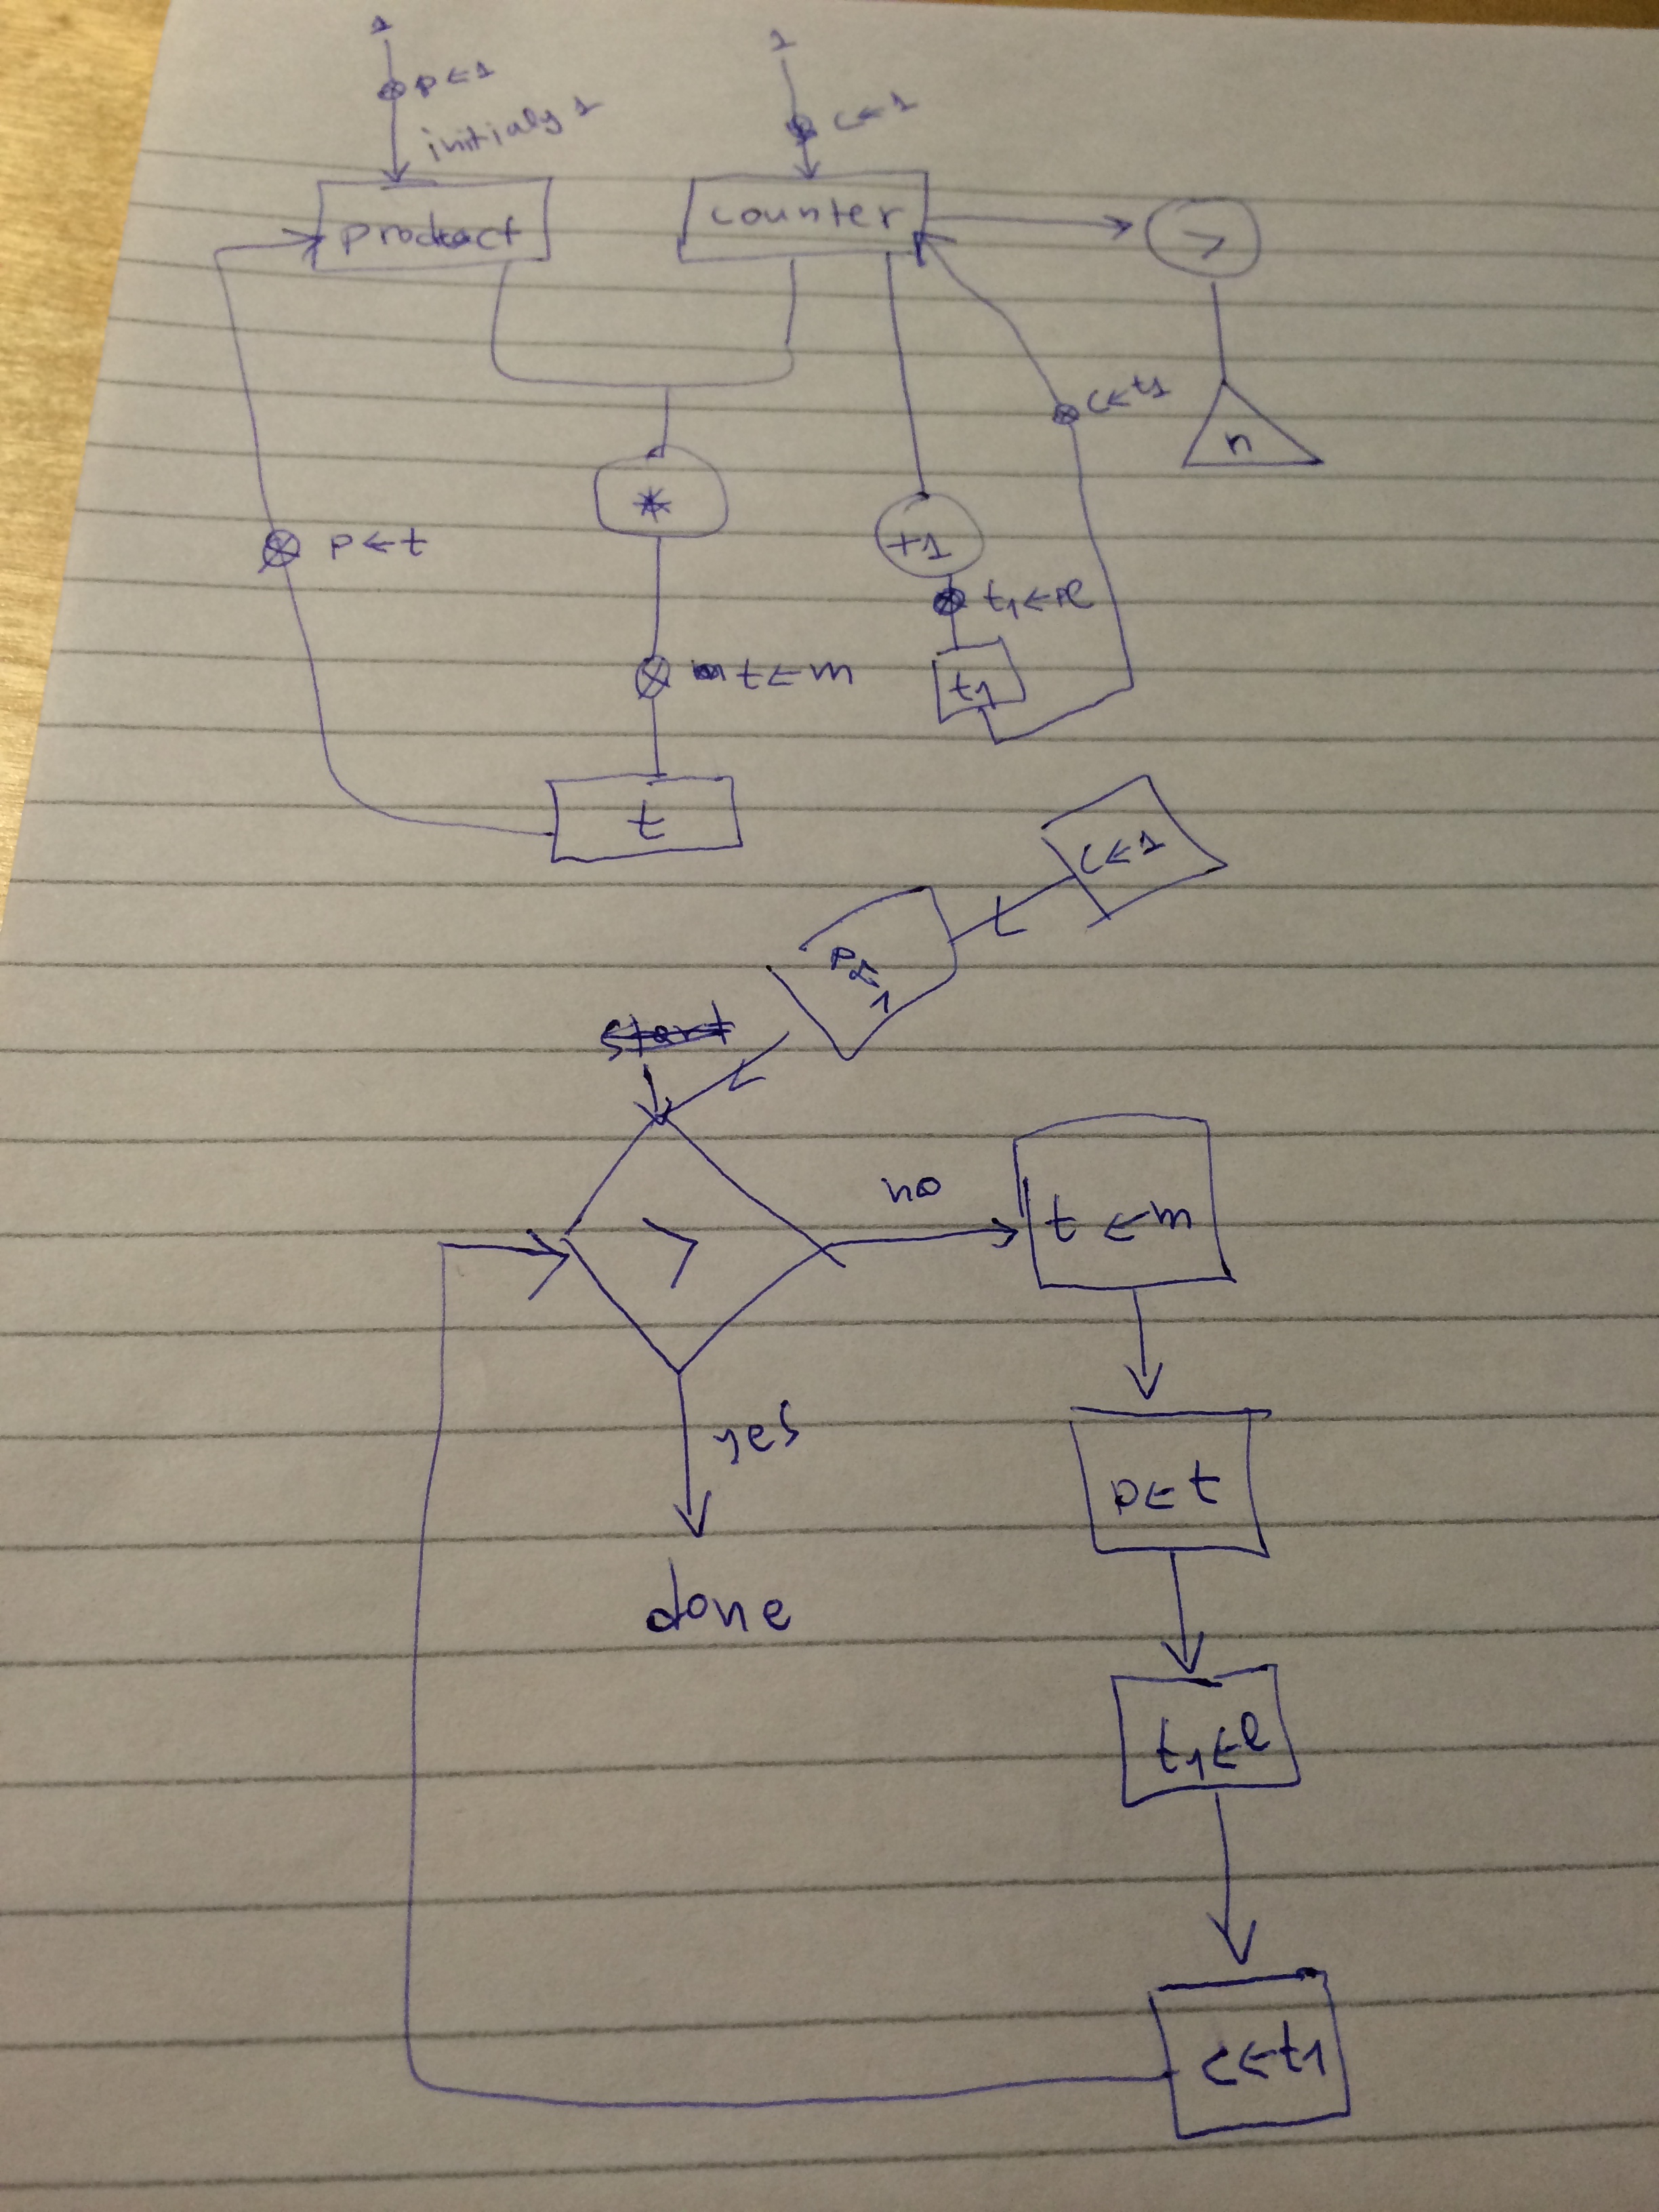 1
1
p ← 1
c ← 1
initialy 1
product
counter
>
c ← t1
n
*
+1
p ← t
t1 ←
t ← m
t1
t
c ← 1
p ← 1
start
no
>
t ← m
yes
p ← t
done
t1 ← e
c ← t1